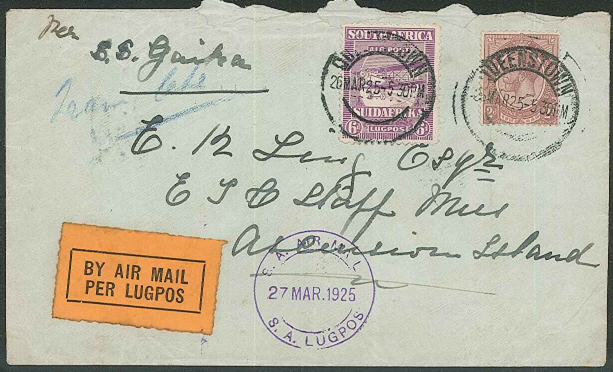 Per
S.S. Gaika
SOUTH AFRICA
AIR POST
SUIDAFRIKA
6D LUGPOS 6D
QUEENSTOWN
26 MAR 25-5 30PM
QUEENSTOWN
MAR 25-5 30PM
E. K. Esqr
E T C Staff Mess
Ascension Island
BY AIR MAIL
PER LUGPOS
S. A. AIR MAIL
27 MAR. 1925
S. A. LUGPOS